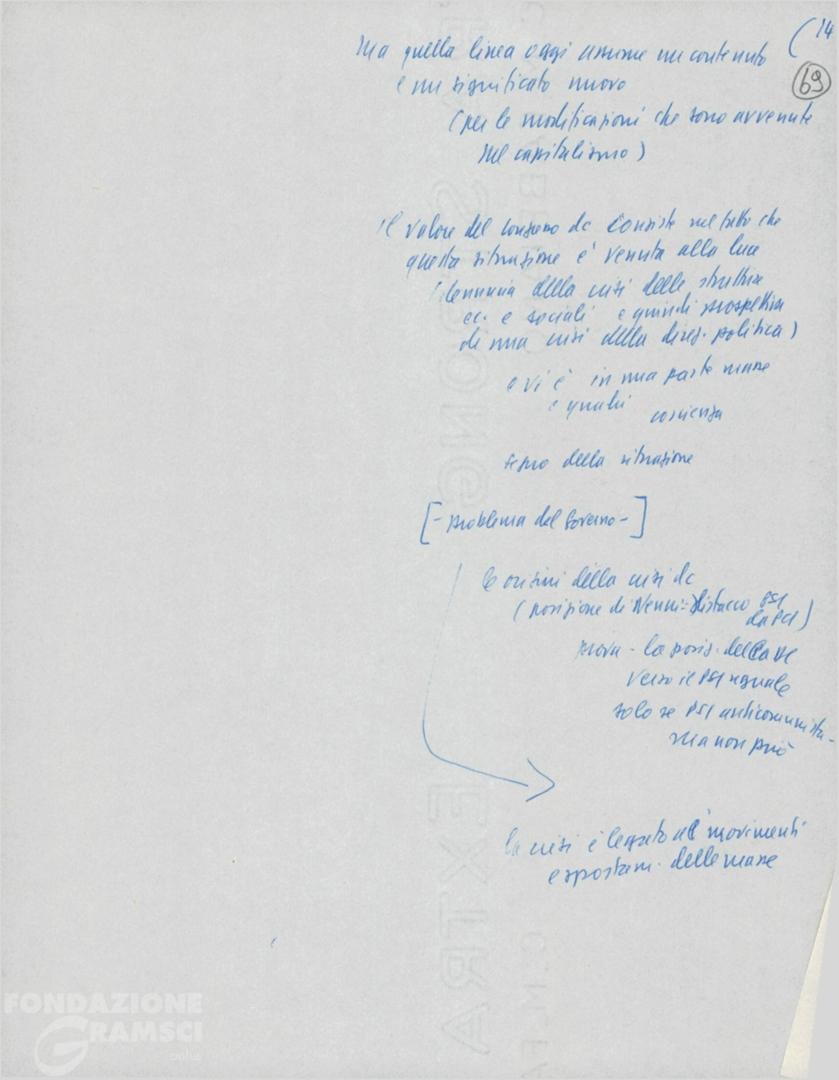 (14
69
Ma quella linea oggi assume un contenuto
e un significato nuovo
(per le modificazioni che sono avvenute
nel capitalismo)
Il valore del congresso dc consiste nel fatto che
questa situazione è venuta alla luce
(denuncia della crisi delle strutture
ec. e sociali e quindi prospettiva
di una crisi della direz. politica)
e vi è in una parte masse
e quadri coscienza
della situazione
[- problema del Governo -]
le origini della crisi dc
(posizione di Nenni: distacco PSI
da PCI)
prova - la posiz. della DC
verso il PSI uguale
solo se PSI anticomunista -
ma non può
la crisi è legata ai movimenti
e spostam. delle masse
FONDAZIONE
GRAMSCI
onlus
EXTRA STRONG